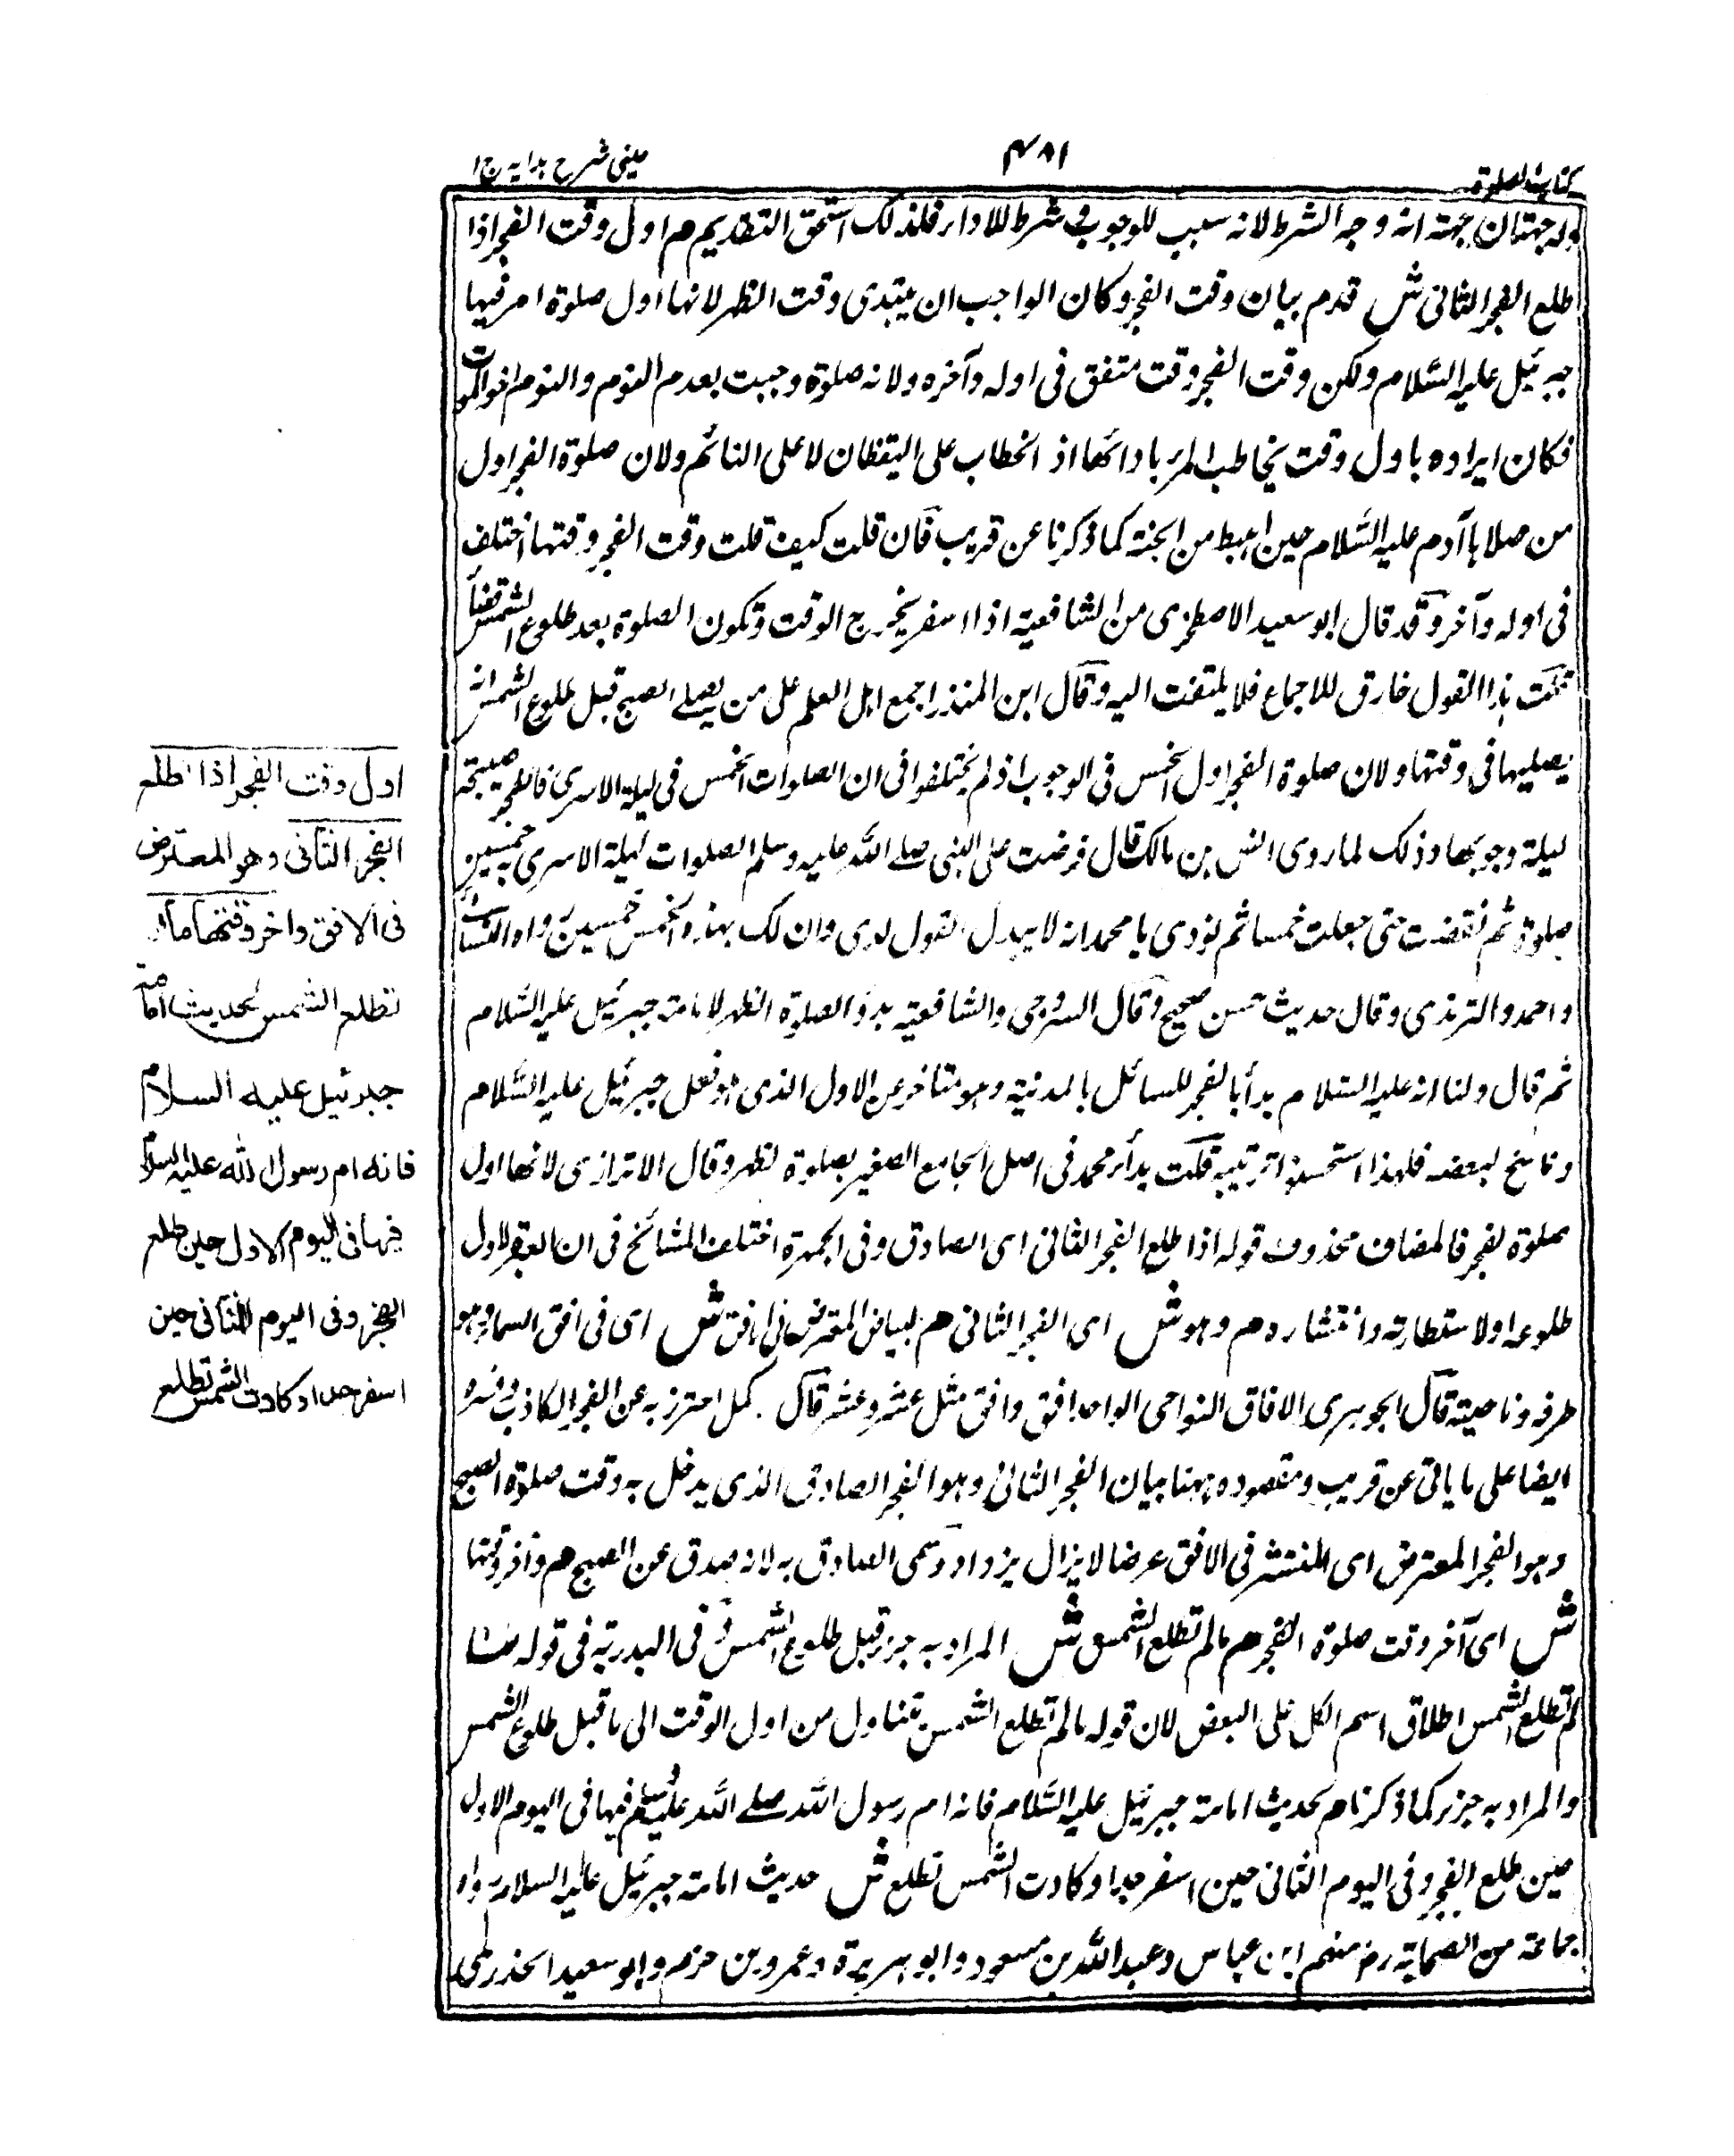 كتاب الصلوة
٤٨١
عينى شرح هدايه ج ١
وله جهتان جهته انه وجه الشرط لانه سبب للوجوب فى شرط للاداء فلذلك استحق التقديم م اول وقت الفجر اذا
طلع الفجر الثانى ش قدم بيان وقت الفجر وكان الواجب ان يبتدى وقت الظهر لانها اول صلوة امر فيها
جبرئيل عليه السلام ولكن وقت الفجر وقت متفق فى اوله وآخره ولانه صلوة وجبت بعدم النوم والنوم اخو الموت
فكان ايراده باول وقت يخاطب المرء بادائها اذ الخطاب على اليقظان لا على النائم ولان صلوة الفجر اول
من صلاها آدم عليه السلام حين اهبط من الجنة كما ذكرنا عن قريب فان قلت كيف قلت وقت الفجر وقتها اختلف
فى اوله وآخر وقد قال ابو سعيد الاصطخرى من الشافعية اذا اسفر يخرج الوقت وتكون الصلوة بعد طلوع الشمس قضأ
قلت هذا القول خارق للاجماع فلا يلتفت اليه وقال ابن المنذر اجمع اهل العلم على من يصلے الصبح قبل طلوع الشمس انه
يصليها فى وقتها ولان صلوة الفجر اول الخمس فى الوجوب اذ لم يختلفوا فى ان الصلوات الخمس فى ليلة الاسرى فالفجر صبيحة
ليلة وجوبها وذلك لما روى انس بن مالك قال فرضت على النبى صلے الله عليه وسلم الصلوات ليلة الاسرى به خمسين
صلوة ثم نقضت حتى جعلت خمسا ثم نودى يا محمد انه لا يبدل القول لدى وان لك بهذه الخمس خمسين رواه النسائى
واحمد والترمذى وقال حديث حسن صحيح وقال السروجى والشافعية بدؤ الصلوة الظهر لامامة جبرئيل عليه السلام
ثم قال ولنا انه عليه السلام بدأ بالفجر للسائل بالمدنية وهو متاخر عن الاول الذى هو فعل جبرئيل عليه السلام
وناسخ لبعضه فلهذا استحسنوا ترتيبه قلت بدأ محمد فى اصل الجامع الصغير بصلوة لظهر وقال الاترازى لانها اول
صلوة لفجر فالمضاف محذوف قوله اذا طلع الفجر الثانى اى الصادق وفى الجمهرة اختلف المشائخ فى ان العبرة لاول
طلوعه او لاستطارته وانتشاره م وهو ش اى الفجر الثانى م البياض المعترض فى الافق ش اى فى افق السماء وهو
طرفه وناصيته قال الجوهرى الافاق النواحى الواحد افق وافق مثل عشر وعشر قال كمل احترز به عن الفجر الكاذب وفسره
ايضا على ما ياتى عن قريب ومقصوده ههنا بيان الفجر الثانى وهو الفجر الصادق الذى يدخل به وقت صلوة الصبح
وهو الفجر المعترض اى المنتشر فى الافق عرضا لا يزال يزداد وسمى الصادق به لانه صدق عن الصبح م وآخر وقتها
ش اى آخر وقت صلوة الفجر م ما لم تطلع الشمس ش المراد به جزء قبل طلوع الشمس وفى البدرية فى قوله ما
لم تطلع الشمس اطلاق اسم الكل على البعض لان قوله ما لم تطلع الشمس يتناول من اول الوقت الى ما قبل طلوع الشمس
والمراد به جزء كما ذكرنا م لحديث امامة جبرئيل عليه السلام فانه ام رسول الله صلے الله عليه وسلم فيها فى اليوم الاول
حين طلع الفجر وفى اليوم الثانى حين اسفر جدا وكادت الشمس تطلع ش حديث امامة جبرئيل عليه السلام رواه
جماعة من الصحابة رض منهم ابن عباس وعبد الله بن مسعود وابو هريرة وعمرو بن حزم وابو سعيد الخدرى
اول وقت الفجر اذا طلع
الفجر الثانى وهو المعترض
فى الافق واخر وقتها ما لم
تطلع الشمس لحديث امامة
جبرئيل عليه السلام
فانه ام رسول الله عليه السلام
فيها فى اليوم الاول حين طلع
الفجر وفى اليوم الثانى حين
اسفر جدا وكادت الشمس تطلع